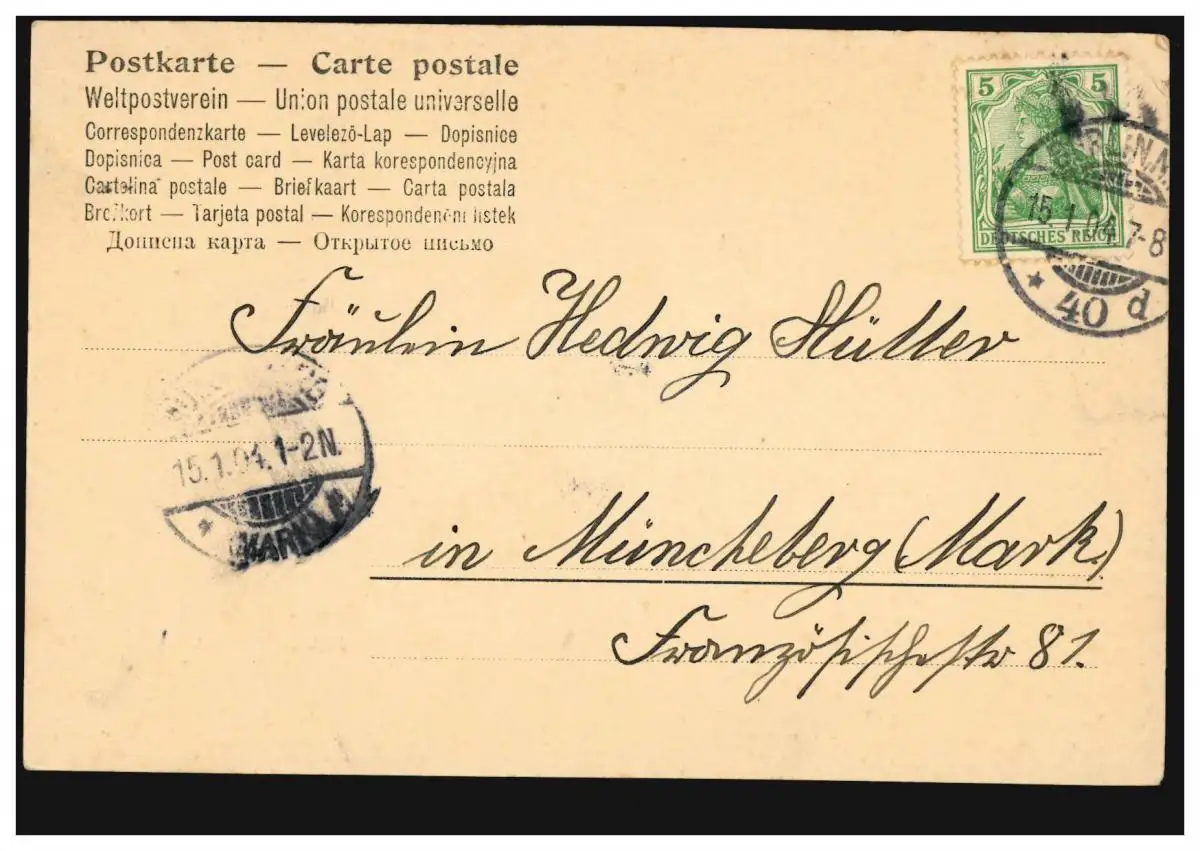 Postkarte — Carte postale
Weltpostverein — Union postale universelle
Correspondenzkarte — Levelező-Lap — Dopisnice
Dopisnica — Post card — Karta korespondencyjna
Cartolina postale — Briefkaart — Carta postala
Brefkort — Tarjeta postal — Korespondenční lístek
Дописна карта — Открытое письмо
5 5
DEUTSCHES REICH
BERLIN.N.
15.1.04. 7-8
* 40 d
Fräulein Hedwig Hütter
15.1.04. 1-2N.
*
in Müncheberg (Mark)
Französischestr 81.